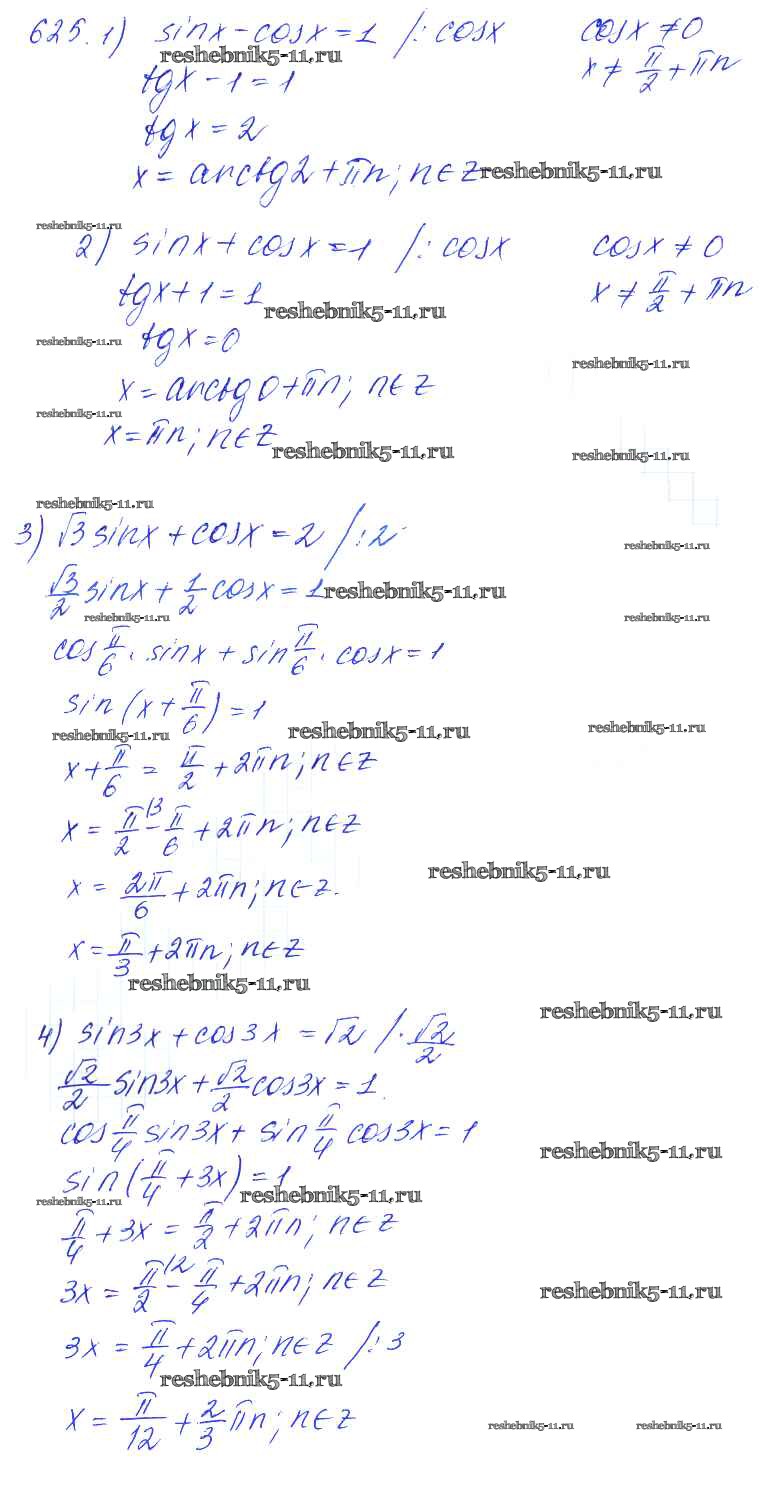 625. 1) sinx - cosx = 1 /: cosx cosx ≠ 0
reshebnik5-11.ru
tgx - 1 = 1 x ≠ π/2 + πn
tgx = 2
x = arctg2 + πn; n∈Z reshebnik5-11.ru
reshebnik5-11.ru
2) sinx + cosx = 1 /: cosx cosx ≠ 0
tgx + 1 = 1 x ≠ π/2 + πn
reshebnik5-11.ru
reshebnik5-11.ru tgx = 0
reshebnik5-11.ru
x = arctg0 + πn; n∈Z
reshebnik5-11.ru
x = πn; n∈Z reshebnik5-11.ru reshebnik5-11.ru
reshebnik5-11.ru
3) √3 sinx + cosx = 2 /: 2
reshebnik5-11.ru
√3/2 sinx + 1/2 cosx = 1 reshebnik5-11.ru
reshebnik5-11.ru reshebnik5-11.ru
cos π/6 · sinx + sin π/6 · cosx = 1
sin(x + π/6) = 1
reshebnik5-11.ru reshebnik5-11.ru reshebnik5-11.ru
x + π/6 = π/2 + 2πn; n∈Z
x = π/2 /3 - π/6 + 2πn; n∈Z
reshebnik5-11.ru
x = 2π/6 + 2πn; n∈Z.
x = π/3 + 2πn; n∈Z
reshebnik5-11.ru
reshebnik5-11.ru
4) sin3x + cos3x = √2 /· √2/2
√2/2 sin3x + √2/2 cos3x = 1
cos π/4 sin3x + sin π/4 cos3x = 1
reshebnik5-11.ru
sin(π/4 + 3x) = 1
reshebnik5-11.ru reshebnik5-11.ru
π/4 + 3x = π/2 + 2πn; n∈Z
3x = π/2 /2 - π/4 + 2πn; n∈Z
reshebnik5-11.ru
3x = π/4 + 2πn; n∈Z /: 3
reshebnik5-11.ru
x = π/12 + 2/3 πn; n∈Z
reshebnik5-11.ru reshebnik5-11.ru